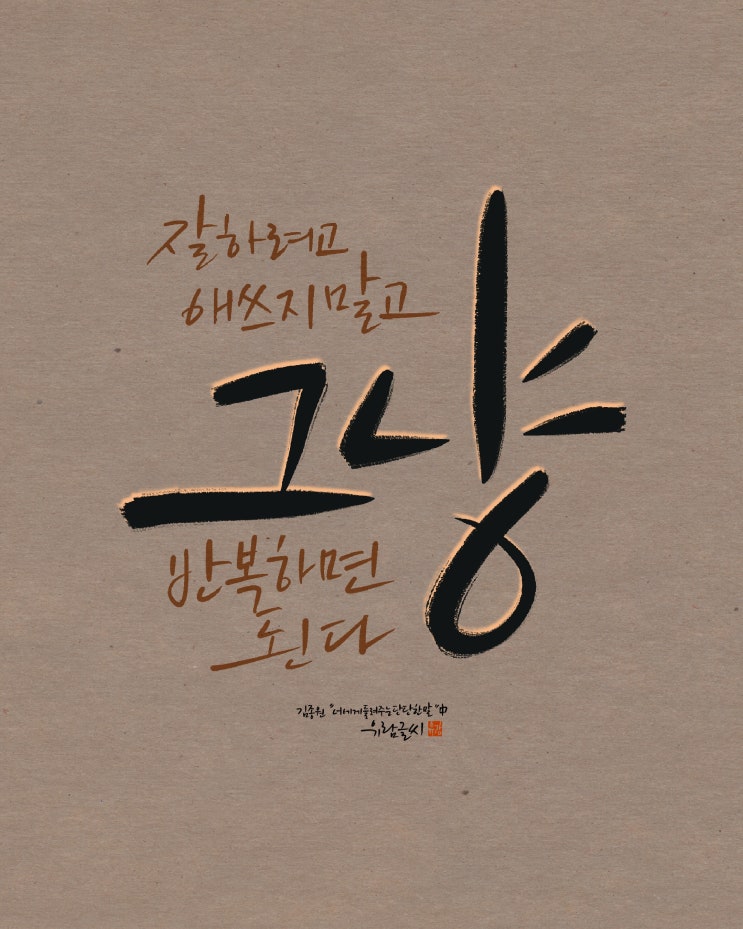 잘하려고
애쓰지말고
그냥
반복하면
된다
김종원 "너에게들려주는단단한말"中
우람글씨